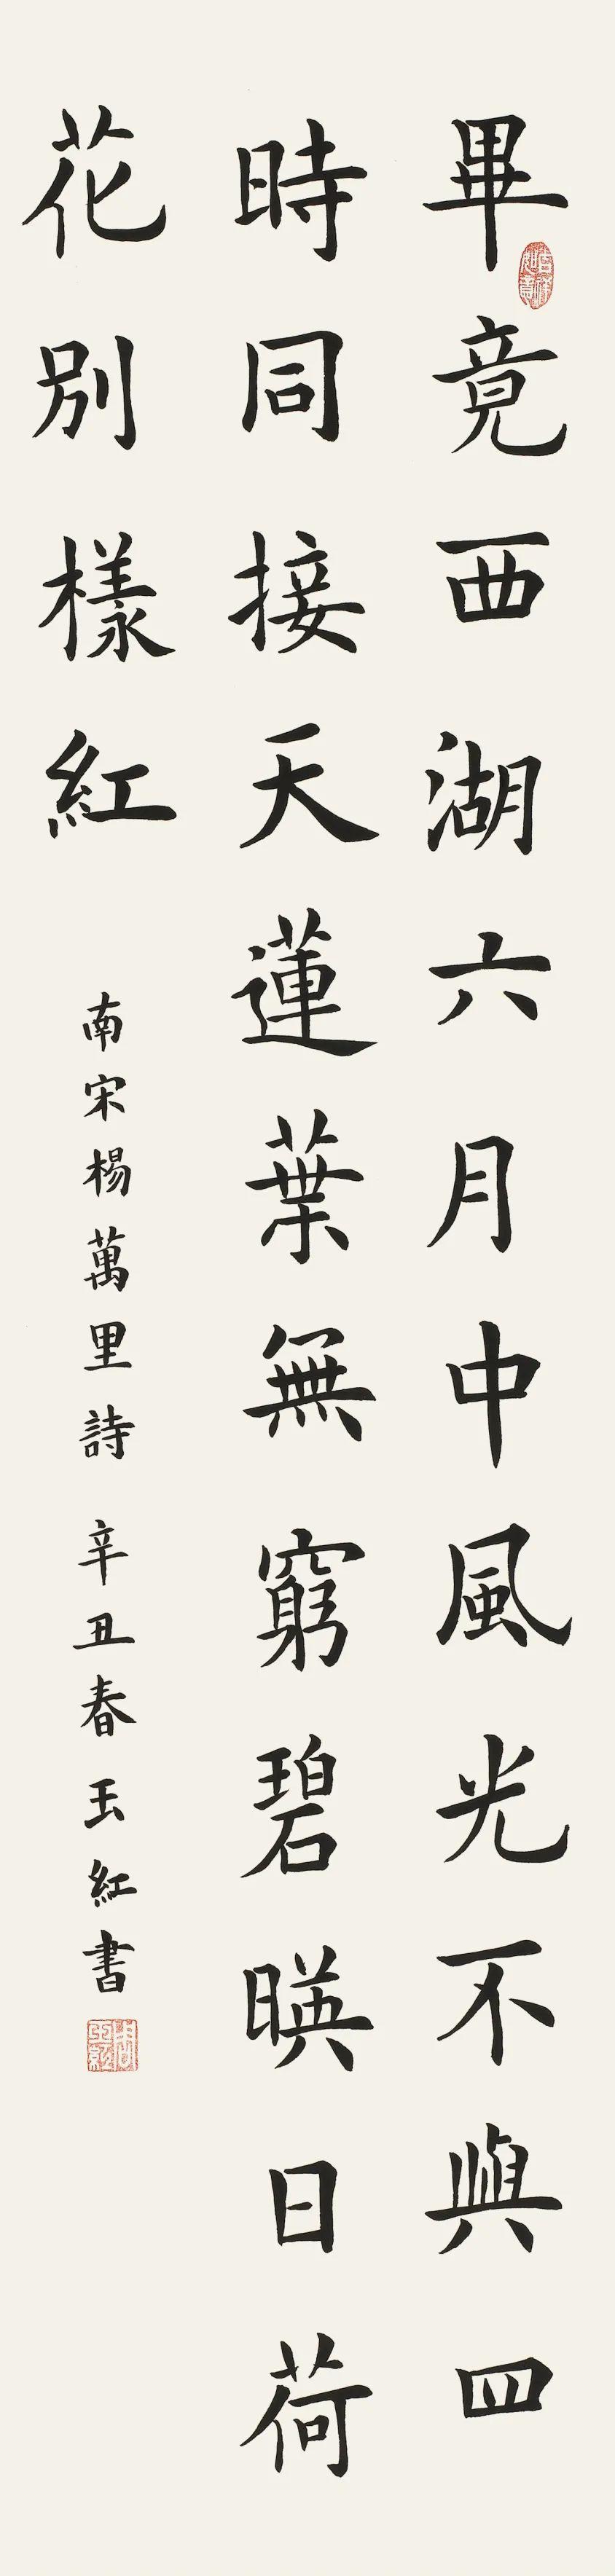 畢竟西湖六月中風光不與四
時同接天蓮葉無窮碧暎日荷
花別樣紅
南宋楊萬里詩 辛丑春玉紅書
吉祥如意